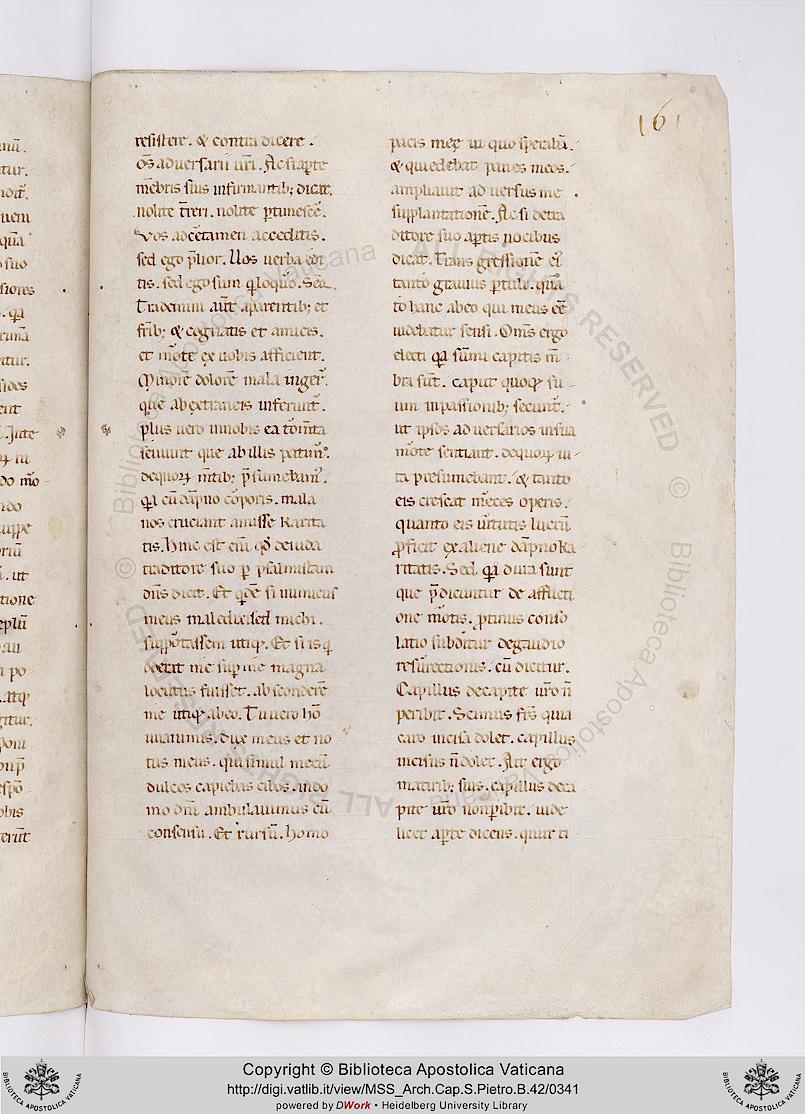 161
resistere. & contra dicere.
oms̄ adversarii vr̄i. Ac si ap̄te
mēbris suis infirmantib; dicat.
nolite t̄reri. nolite p̄timescē.
Vos ad cētamen acceditis.
sed ego p̄lior. Uos verba edi
tis. sed ego sum q̄ loquor. Seq̄.
Trademini aūt a parentib; et
fr̄ib; & cognatis et amicis.
et mōte ex vobis afficient.
Minorē dolorē mala ingerūt.
que ab extraneis inferunt̄.
Plus vero in nobis ea tōm̄ta
seviunt que ab illis patimr̄.
de quoꝝ m̄tib; p̄sumebam̄.
q̄a cū dāpno cōporis. mala
nos cruciant amisse karita
tis. Hinc est eni qd̄ de iuda
traditore suo p̄ psalmistam
dn̄s dicit. Et q̄de si inimicus
meus maledixisset michi.
supportassem utiq̄. Et si is q̄
oderat me sup̄ me magna
locutus fuisset. absconderē
me utiq̄ ab eo. Tu vero hō
unanimis. dux meus et no
tus meus. qui simul mecū
dulces capiebas cibos. in do
mo dn̄i ambulavimus cū
consensu. Et rursū. homo
pacis meę in quo sperabā.
& qui edebat panes meos.
ampliavit adversus me
supplantationē. Ac si de tra
ditore suo ap̄tis vocibus
dicat. Transgressionē ei
tanto gravius p̄tuli. quā
to hanc ab eo qui meus eē
videbatur sensi. Oms̄ ergo
electi q̄a sūmi capitis m̄
bra sūt. caput quoq̄ su
um in passionib; secunt̄.
ut ipsos adversarios in sua
mōte sentiant. de quoꝝ vi
ta presumebant. & tanto
eis crescat mēces operis.
quanto eis virtutis lucrū
proficit ex aliene dāpno ka
ritatis. Sed q̄a dura sunt
que p̄dicuntur de afflicti
one mōtis. protinus conso
latio subditur de gaudio
resurectionis. cū dicitur.
Capillus de capite vr̄o n̄
peribit. Scimus fr̄s quia
caro incisa dolet. capillus
incisus n̄ dolet. Ait ergo
matirib; suis. capillus de ca
pite vr̄o non p̄ibit. vide
licet ap̄te dicens. quur ti
Copyright © Biblioteca Apostolica Vaticana
http://digi.vatlib.it/view/MSS_Arch.Cap.S.Pietro.B.42/0341
powered by DWork • Heidelberg University Library